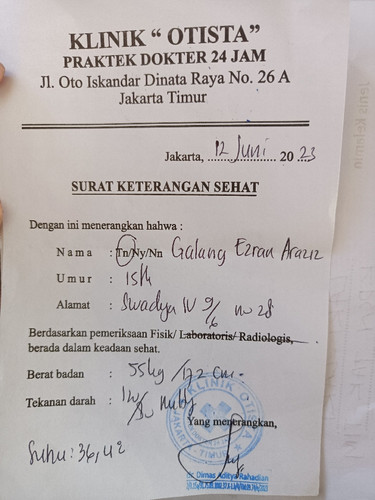 KLINIK “ OTISTA”
PRAKTEK DOKTER 24 JAM
Jl. Oto Iskandar Dinata Raya No. 26 A
Jakarta Timur
Jakarta, 12 Juni 2023
SURAT KETERANGAN SEHAT
Dengan ini menerangkan bahwa :
Nama : Tn/Ny/Nn Galang Ezran Araziz
Umur : 15th
Alamat : Swadya IV 9/6 no 28
Berdasarkan pemeriksaan Fisik/ Laboratoris/ Radiologis,
berada dalam keadaan sehat.
Berat badan : 55kg /172 cm.
Tekanan darah : 120/80
Yang menerangkan,
Suhu : 36,42
KLINIK OTISTA
JAKARTA TIMUR
dr. Dimas Aditya Rahadian